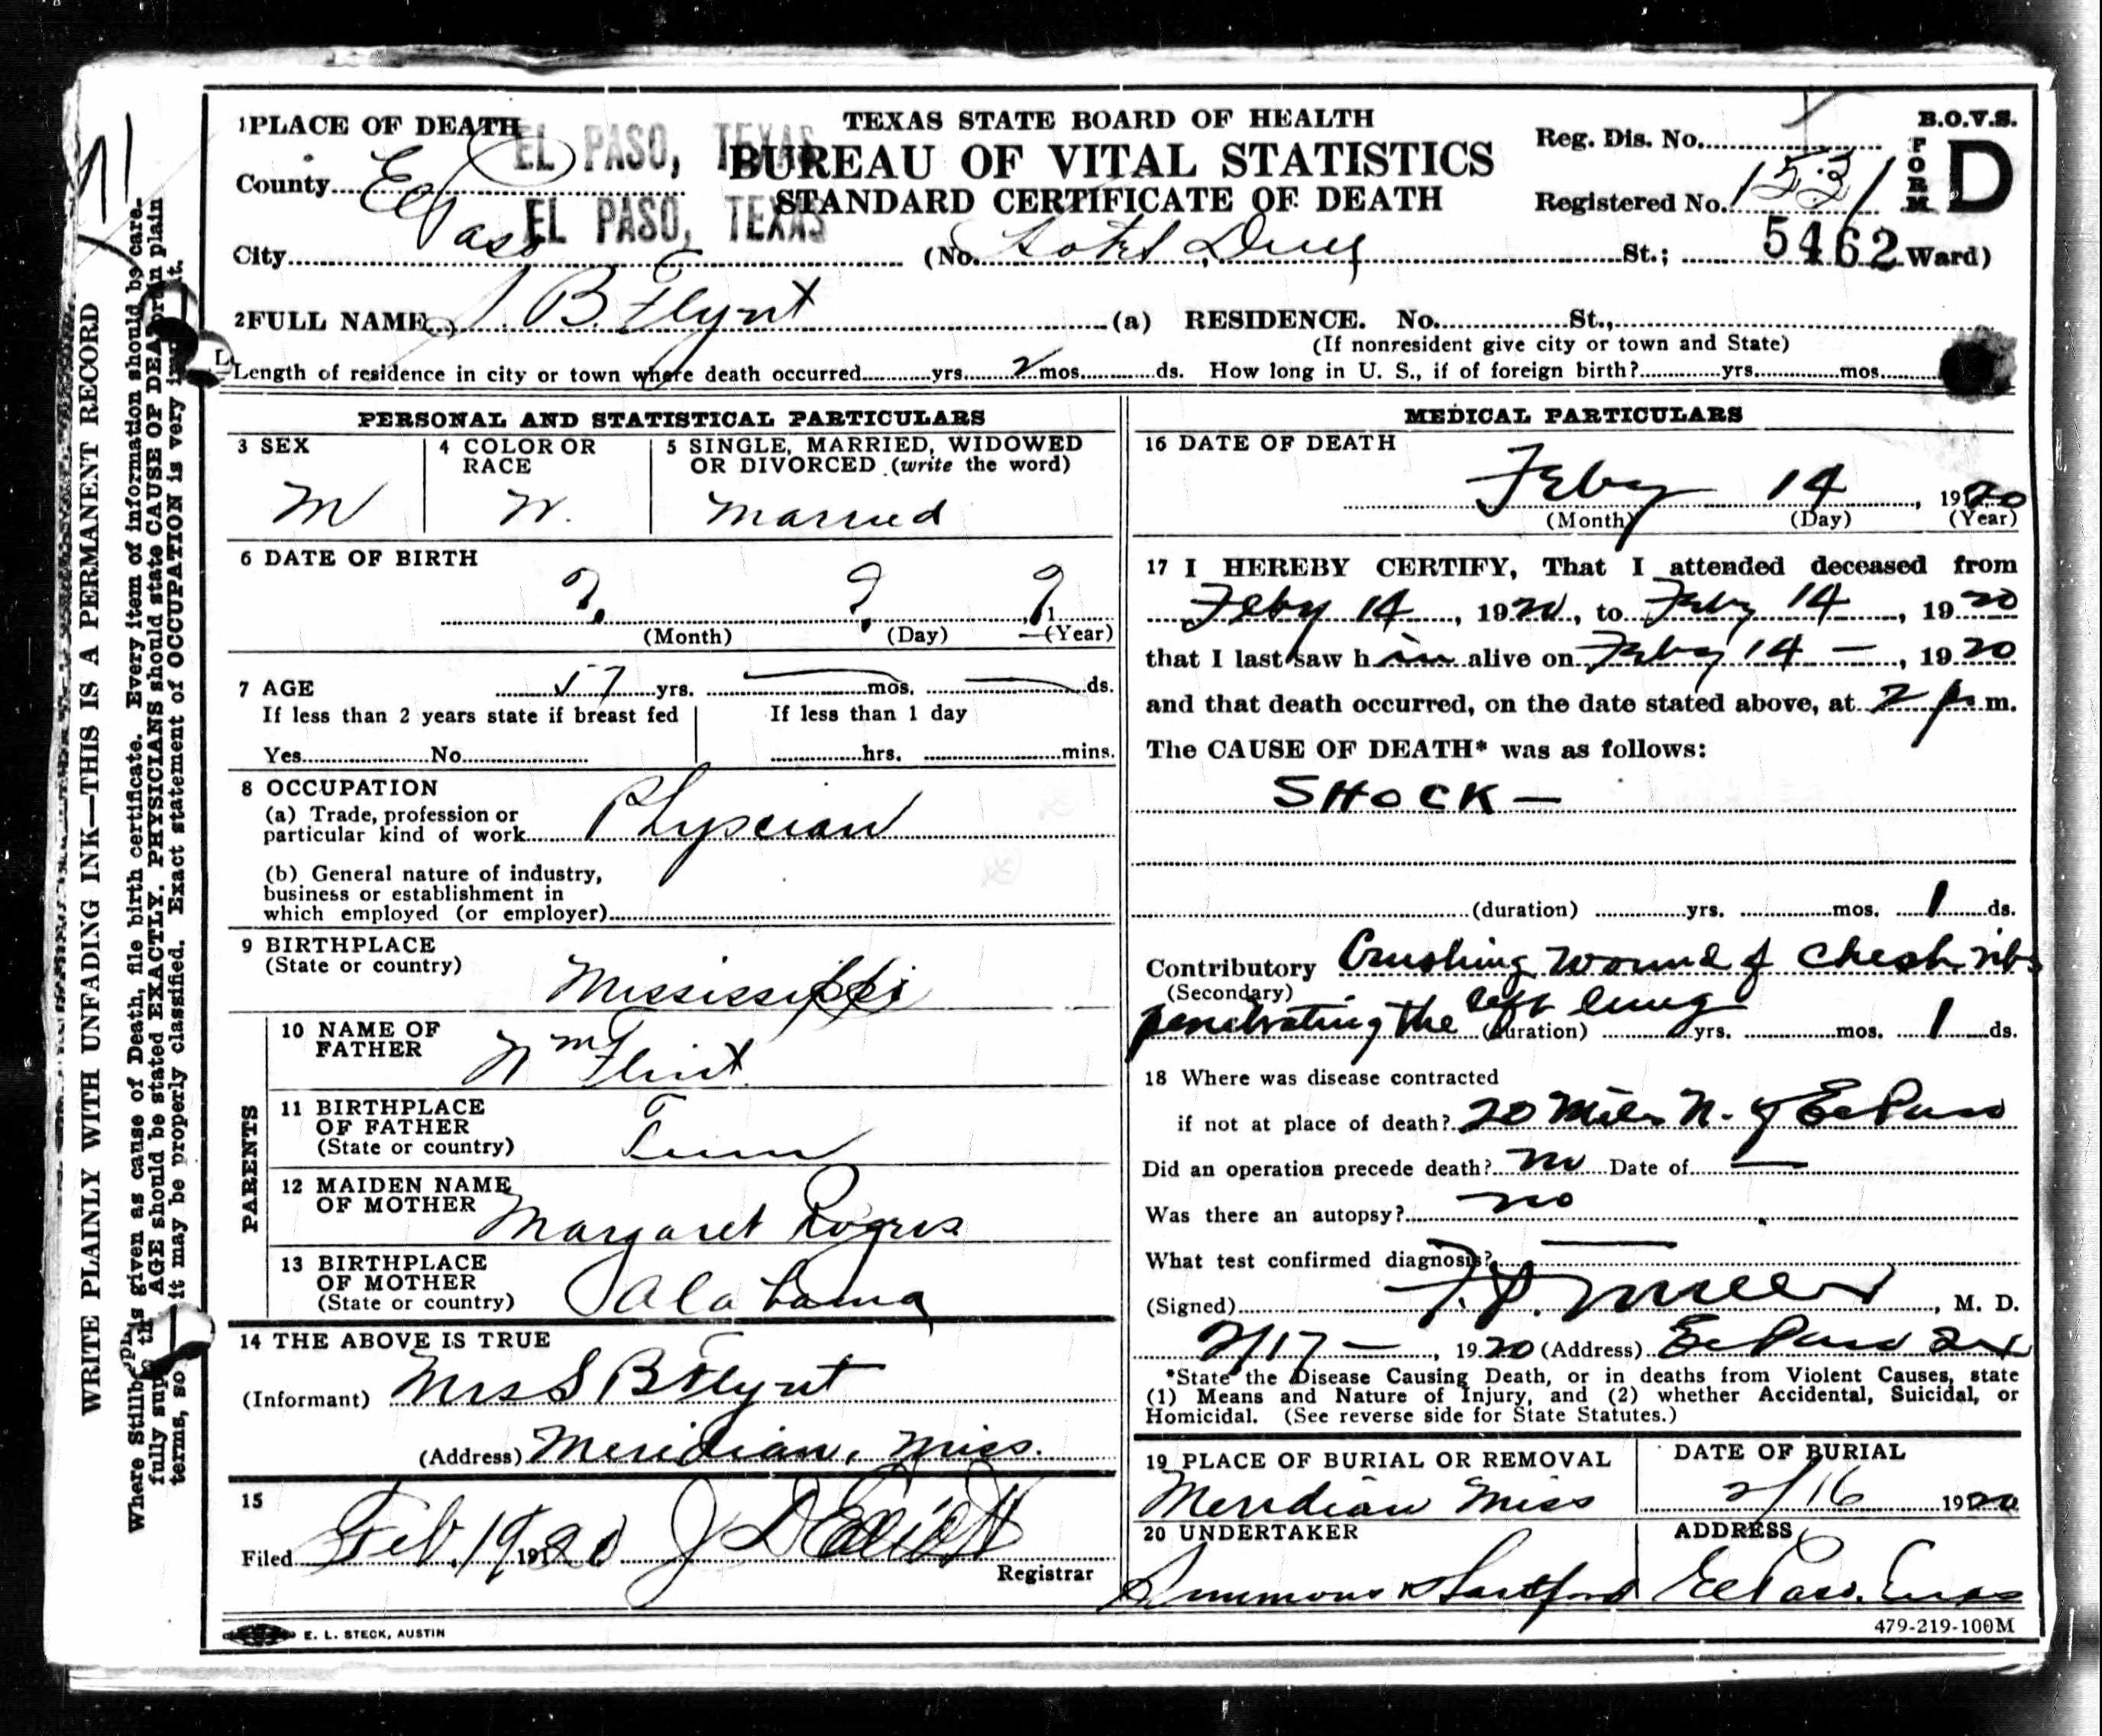 1 PLACE OF DEATH
EL PASO, TEXAS
TEXAS STATE BOARD OF HEALTH
BUREAU OF VITAL STATISTICS
STANDARD CERTIFICATE OF DEATH
B.O.V.S.
FORM D
Reg. Dis. No.
County El Paso
Registered No. 1531
EL PASO, TEXAS
5462
City (No. Hotel St.; Ward)
2 FULL NAME B. Flynt (a) RESIDENCE. No. St.,
(If nonresident give city or town and State)
Length of residence in city or town where death occurred yrs. 2 mos. ds. How long in U. S., if of foreign birth? yrs. mos.
PERSONAL AND STATISTICAL PARTICULARS
3 SEX
M
4 COLOR OR RACE
W.
5 SINGLE, MARRIED, WIDOWED
OR DIVORCED (write the word)
Married
6 DATE OF BIRTH
? ? ?
(Month) (Day) (Year)
7 AGE 57 yrs. — mos. — ds.
If less than 2 years state if breast fed
If less than 1 day
Yes No
hrs. mins.
8 OCCUPATION
(a) Trade, profession or
particular kind of work Physcian
(b) General nature of industry,
business or establishment in
which employed (or employer)
9 BIRTHPLACE
(State or country) Mississippi
PARENTS
10 NAME OF
FATHER Wm Flint
11 BIRTHPLACE
OF FATHER
(State or country) Tenn
12 MAIDEN NAME
OF MOTHER Margaret Rogers
13 BIRTHPLACE
OF MOTHER
(State or country) Alabama
14 THE ABOVE IS TRUE
(Informant) Mrs S B Flynt
(Address) Meridian, Miss.
15
Filed Feb. 19 1920 J D Elliott
Registrar
E. L. STECK, AUSTIN
MEDICAL PARTICULARS
16 DATE OF DEATH
Feby 14, 1920
(Month) (Day) (Year)
17 I HEREBY CERTIFY, That I attended deceased from
Feby 14, 1920, to Feby 14, 1920
that I last saw him alive on Feby 14 —, 1920
and that death occurred, on the date stated above, at 2 p. m.
The CAUSE OF DEATH* was as follows:
SHOCK —
(duration) yrs. mos. 1 ds.
Contributory Crushing wound of chest ribs
(Secondary)
penetrating the left lung (duration) yrs. mos. 1 ds.
18 Where was disease contracted
if not at place of death? 20 Miles N. of El Paso
Did an operation precede death? no Date of —
Was there an autopsy? no
What test confirmed diagnosis? —
(Signed) F.P. Miller, M. D.
2/17 —, 1920 (Address) El Paso Tex
*State the Disease Causing Death, or in deaths from Violent Causes, state
(1) Means and Nature of Injury, and (2) whether Accidental, Suicidal, or
Homicidal. (See reverse side for State Statutes.)
19 PLACE OF BURIAL OR REMOVAL
Meridian Miss
DATE OF BURIAL
2/16 1920
20 UNDERTAKER
Simmons & Hartford
ADDRESS
El Paso, Texas
479-219-100M
WRITE PLAINLY WITH UNFADING INK—THIS IS A PERMANENT RECORD
Where Stillb this given as cause of Death, file birth certificate. Every item of information should be care-
fully supp AGE should be stated EXACTLY. PHYSICIANS should state CAUSE OF DEATH in plain
terms, so it may be properly classified. Exact statement of OCCUPATION is very important.